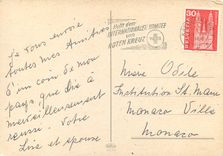 Je vous envoie
toutes mes amitiés
d'un coin de mon
pays que
merveilleusement
réussi. Votre
Helft dem
INTERNATIONALEN KOMITEE
vom
ROTEN KREUZ
HELVETIA
30
Mère Odile
Institution St. Maur
Monaco Ville
Monaco